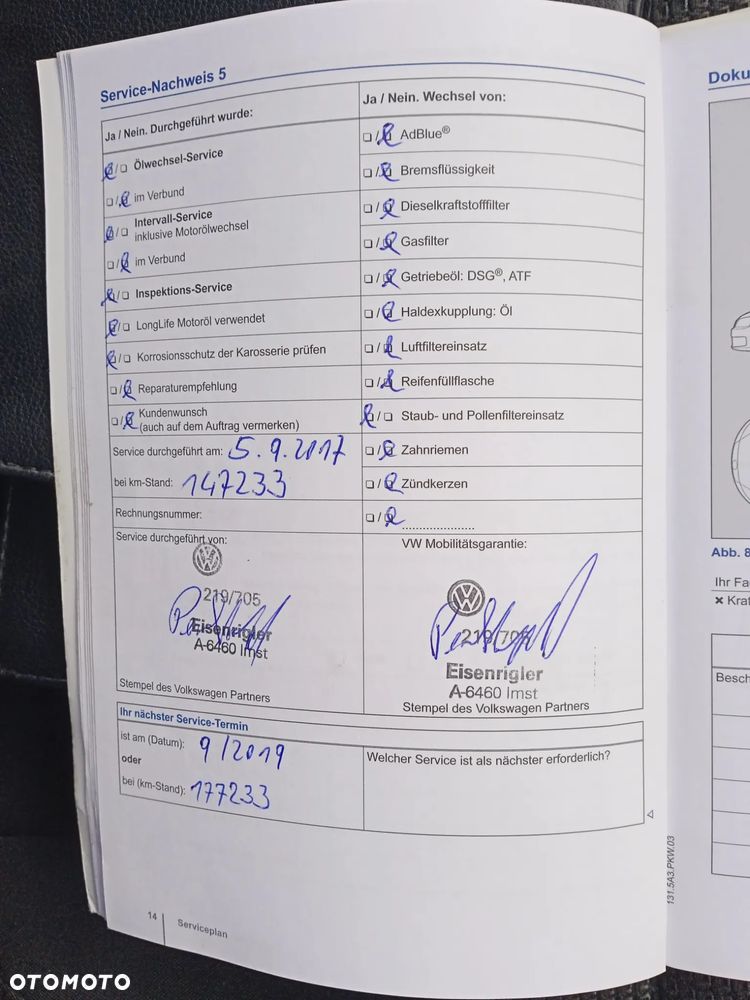 Service-Nachweis 5
Ja / Nein. Durchgeführt wurde:
❏/❏ Ölwechsel-Service
❏/❏ im Verbund
❏/❏ Intervall-Service
inklusive Motorölwechsel
❏/❏ im Verbund
❏/❏ Inspektions-Service
❏/❏ LongLife Motoröl verwendet
❏/❏ Korrosionsschutz der Karosserie prüfen
❏/❏ Reparaturempfehlung
❏/❏ Kundenwunsch
(auch auf dem Auftrag vermerken)
Service durchgeführt am: 5.9.2017
bei km-Stand: 147233
Rechnungsnummer:
Service durchgeführt von:
219/705
Eisenrigler
A-6460 Imst
Stempel des Volkswagen Partners
Ja / Nein. Wechsel von:
❏/❏ AdBlue®
❏/❏ Bremsflüssigkeit
❏/❏ Dieselkraftstofffilter
❏/❏ Gasfilter
❏/❏ Getriebeöl: DSG®, ATF
❏/❏ Haldexkupplung: Öl
❏/❏ Luftfiltereinsatz
❏/❏ Reifenfüllflasche
❏/❏ Staub- und Pollenfiltereinsatz
❏/❏ Zahnriemen
❏/❏ Zündkerzen
❏/❏ ......................
VW Mobilitätsgarantie:
219/705
Eisenrigler
A-6460 Imst
Stempel des Volkswagen Partners
Ihr nächster Service-Termin
ist am (Datum): 9/2019
oder
bei (km-Stand): 177233
Welcher Service ist als nächster erforderlich?
131.5A3.PKW.03
14
Serviceplan
Doku
Abb. 8
Ihr Fa
× Kraf
Besch
OTOMOTO